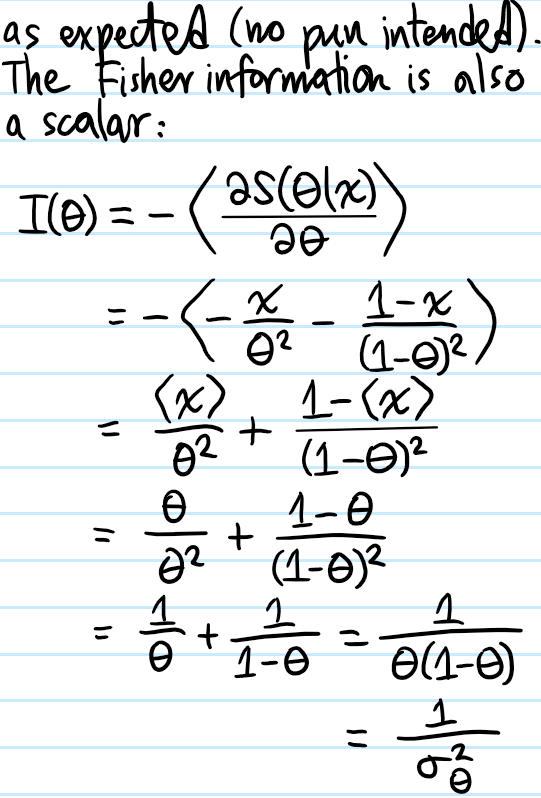 as expected (no pun intended).
The Fisher information is also
a scalar:
I(θ) = - ⟨ ∂S(θ|x) / ∂θ ⟩
= - ⟨ - x/θ² - (1-x)/(1-θ)² ⟩
= ⟨x⟩/θ² + (1-⟨x⟩)/(1-θ)²
= θ/θ² + (1-θ)/(1-θ)²
= 1/θ + 1/(1-θ) = 1/(θ(1-θ))
= 1/σ²_θ